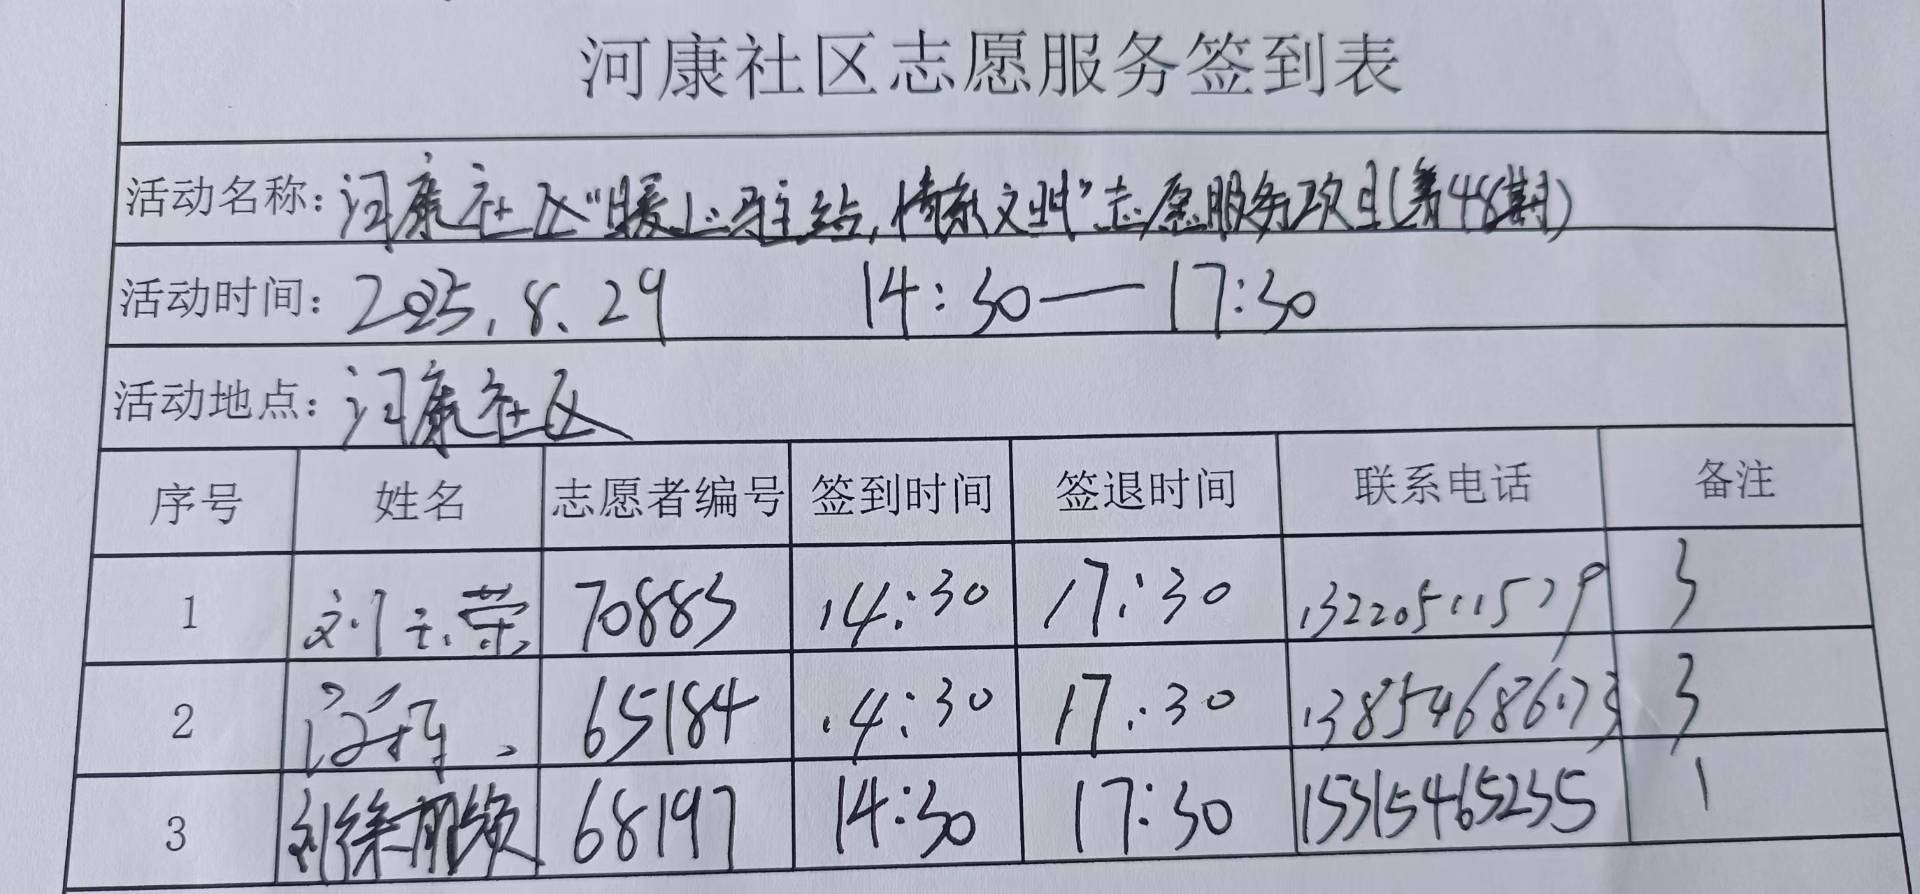 河康社区志愿服务签到表
活动名称：河康社区“暖心驿站，情系文明”志愿服务项目（第48期）
活动时间：2025.8.29 14:30—17:30
活动地点：河康社区
序号 姓名 志愿者编号 签到时间 签退时间 联系电话 备注
1 刘云荣 70883 14:30 17:30 13220511579 3
2 65184 14:30 17:30 13854686173 3
3 68197 14:30 17:30 15315465235 1